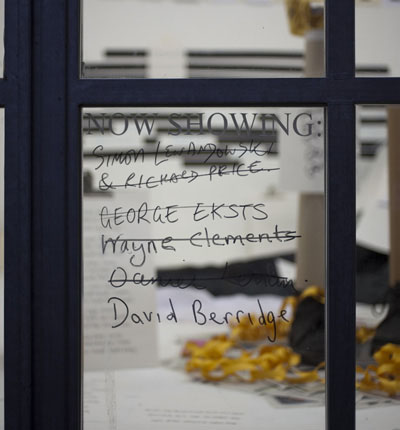 NOW SHOWING:
SIMON LEWANDOWSKI
& RICHARD PRICE.
GEORGE EKSTS
Wayne Clements
David Berridge